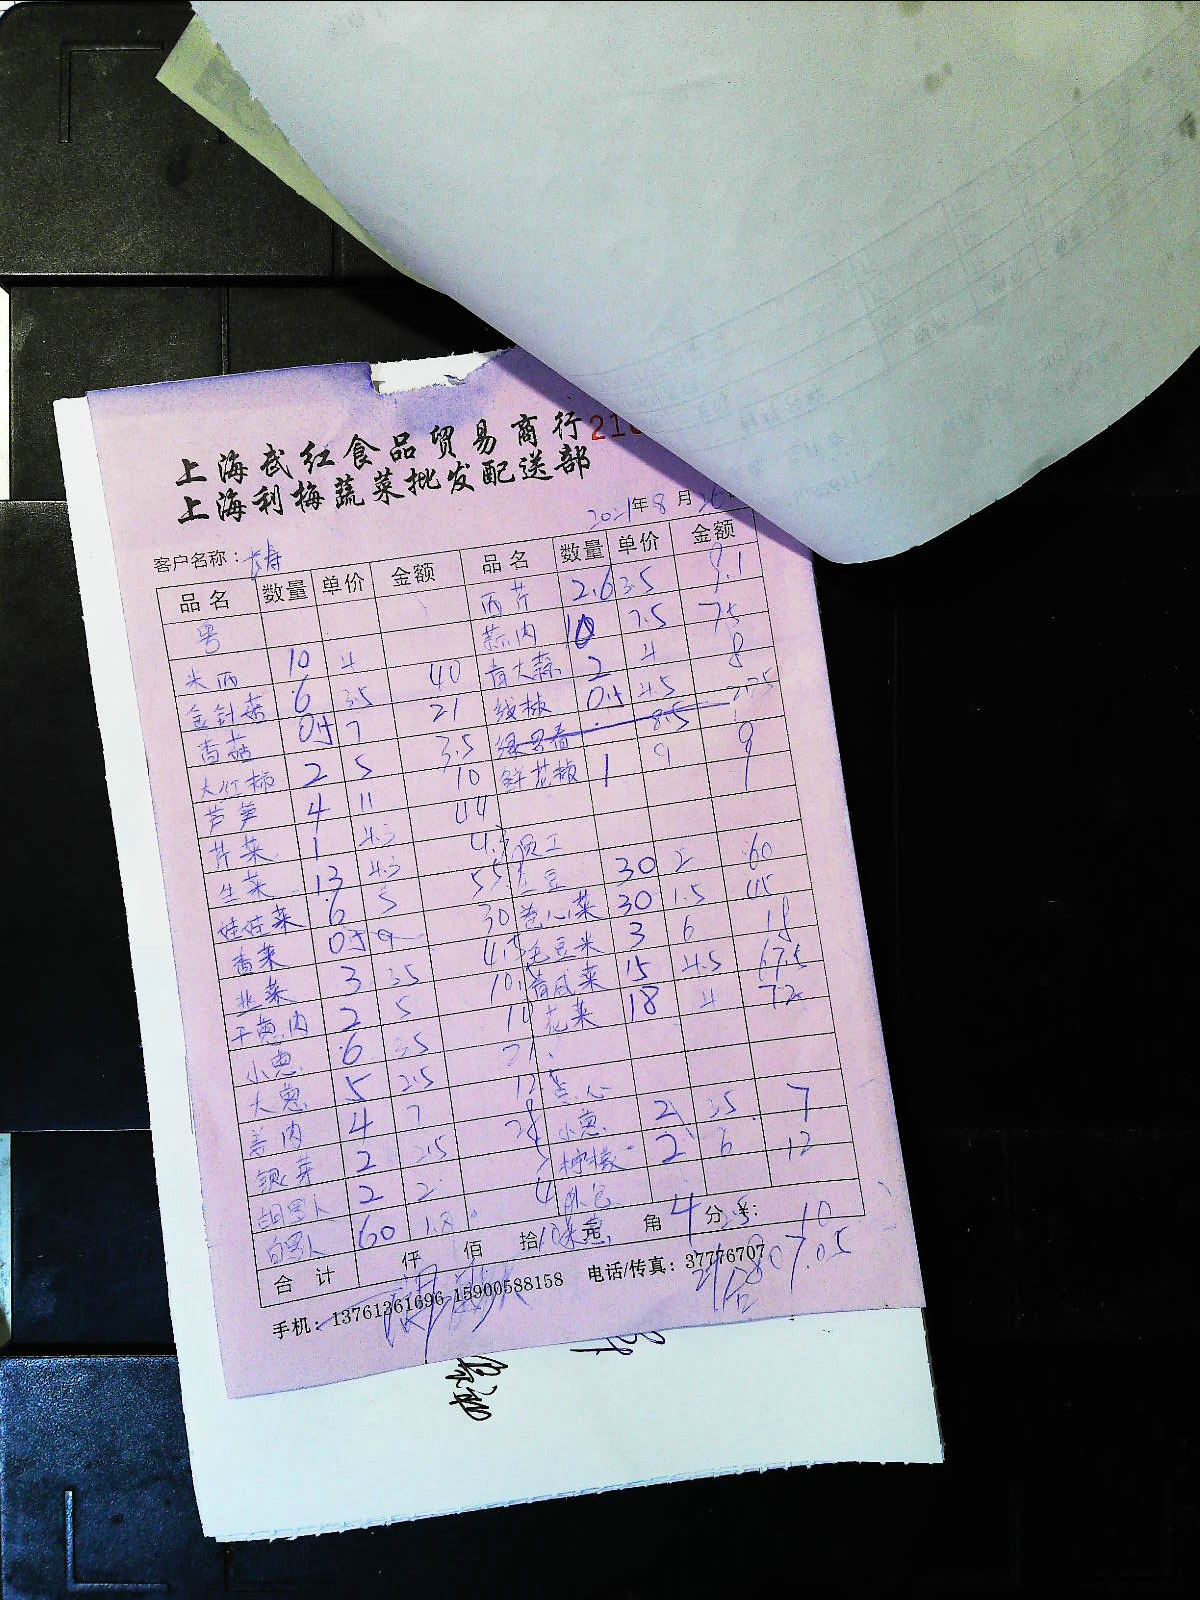 上海武红食品贸易商行
上海利梅蔬菜批发配送部
2021年8月26
客户名称：长寿
品名 数量 单价 金额 品名 数量 单价 金额
粤 西芹 2.6 3.5 9.1
蒜肉 10 7.5 75
米西 10 4 40 青大蒜 2 4 8
金针菇 6 3.5 21 线椒 0.5 4.5
香菇 0.5 7 3.5 8.5
大红椒 2 5 10 鲜花椒 1 9 9
芦笋 4 11 44
芹菜 1 4.3 4.3 员工
生菜 13 4.3 土豆 30 2 60
娃娃菜 6 5 30 卷心菜 30 1.5 45
香菜 0.5 9 4.5 毛豆米 3 6 18
韭菜 3 3.5 10.5 15 4.5 67.5
干葱肉 2 5 10 花菜 18 4 72
小葱 6 3.5 21
大葱 5 2.5 12.5
姜肉 4 7 28 小葱 2 3.5 7
银菜 2 2.5 5 柠檬 2 6 12
胡罗卜 2 2 4
白罗卜 60 1.8 108 4 3.5
合计 仟 佰 拾 元 角 分 ¥: 10
手机：13761361696 15900588158 电话/传真：37776707